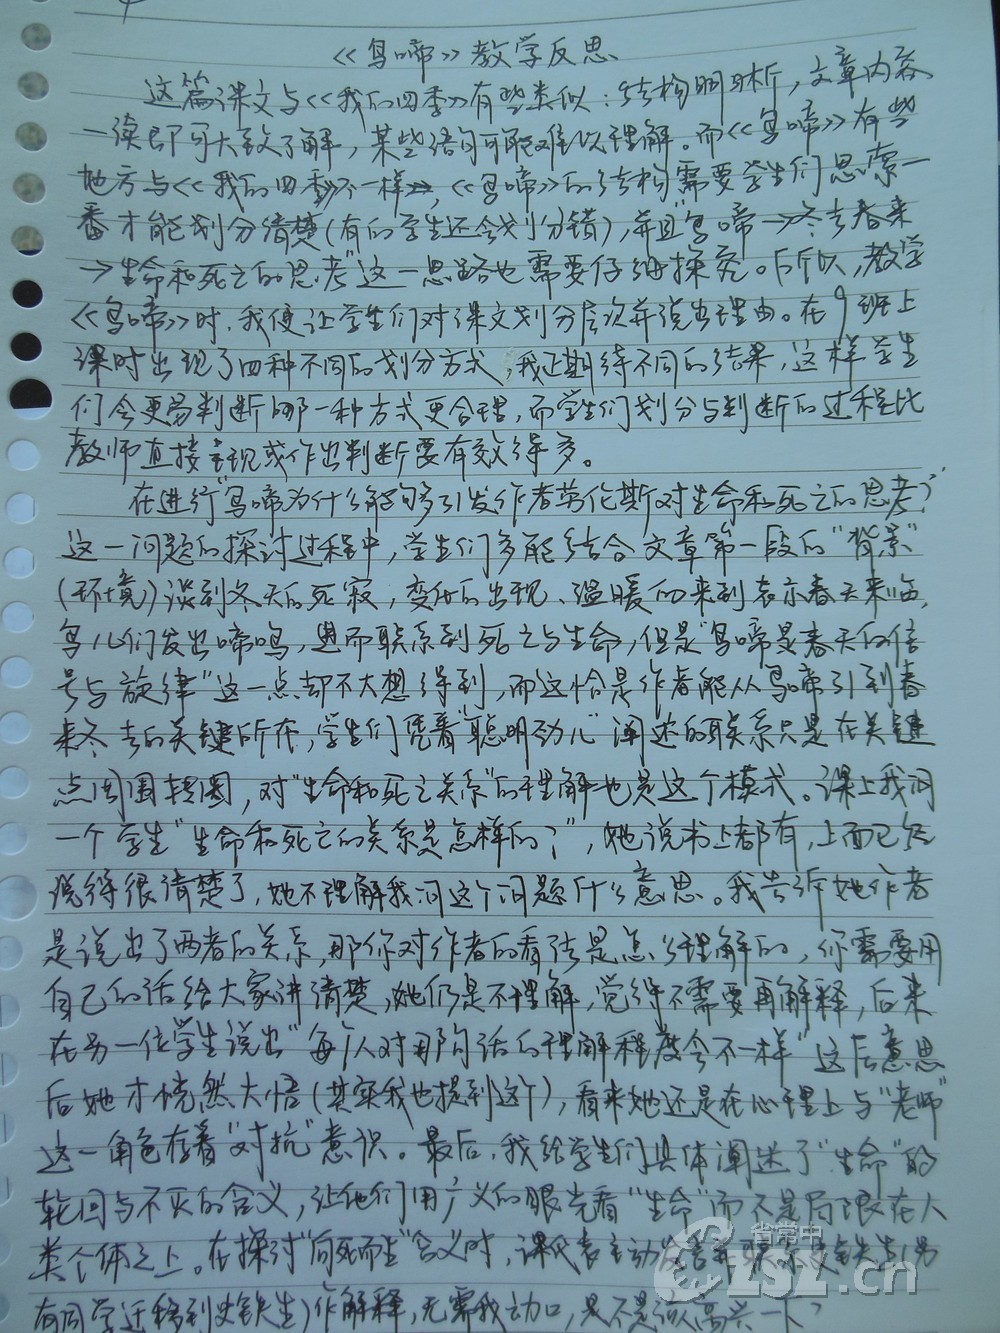 《鸟啼》教学反思
这篇课文与《我的四季》有些类似：结构明晰，文章内容
一读即可大致了解，某些语句可能难以理解。而《鸟啼》有些
地方与《我的四季》不一样，《鸟啼》的结构需要学生们思索一
番才能划分清楚（有的学生还会划分错），并且“鸟啼→冬去春来
→生命和死亡的思考”这一思路也需要仔细探究。所以，教学
《鸟啼》时，我便让学生们对课文划分层次并说出理由。在9班上
课时出现了四种不同的划分方式，我正期待不同的结果，这样学生
们会更易判断哪一种方式更合理，而学生们划分与判断的过程比
教师直接呈现或作出判断要有效得多。
在进行“鸟啼为什么能够引发作者劳伦斯对生命和死亡的思考？”
这一问题的探讨过程中，学生们多能结合文章第一段的“背景”
（环境）谈到冬天的死寂，变化的出现、温暖的来到表示春天来临，
鸟儿们发出啼鸣，进而联系到死亡与生命，但是“鸟啼是春天的信
号与旋律”这一点却不大想得到，而这恰是作者能从鸟啼引到春
来冬去的关键所在，学生们凭着“聪明劲儿”阐述的联系只是在关键
点周围转圈，对“生命和死亡关系”的理解也是这个模式。课上我问
一个学生“生命和死亡的关系是怎样的？”，她说书上都有，上面已经
说得很清楚了，她不理解我问这个问题什么意思。我告诉她作者
是说出了两者的关系，那你对作者的看法是怎么理解的，你需要用
自己的话给大家讲清楚，她仍是不理解，觉得不需要再解释，后来
在另一位学生说出“每个人对那句话的理解程度会不一样”这层意思
后她才恍然大悟（其实我也提到这个），看来她还是在心理上与“老师”
这一角色存着“对抗”意识。最后，我给学生们具体阐述了“生命”的
轮回与不灭的含义，让他们用广义的眼光看“生命”而不是局限在人
类个体之上。在探讨“向死而生”含义时，课代表主动发言并联系史铁生（另
有同学迁移到史铁生）作解释，无需我动口，是不是该高兴一下？
省常中
CZSZ.cn